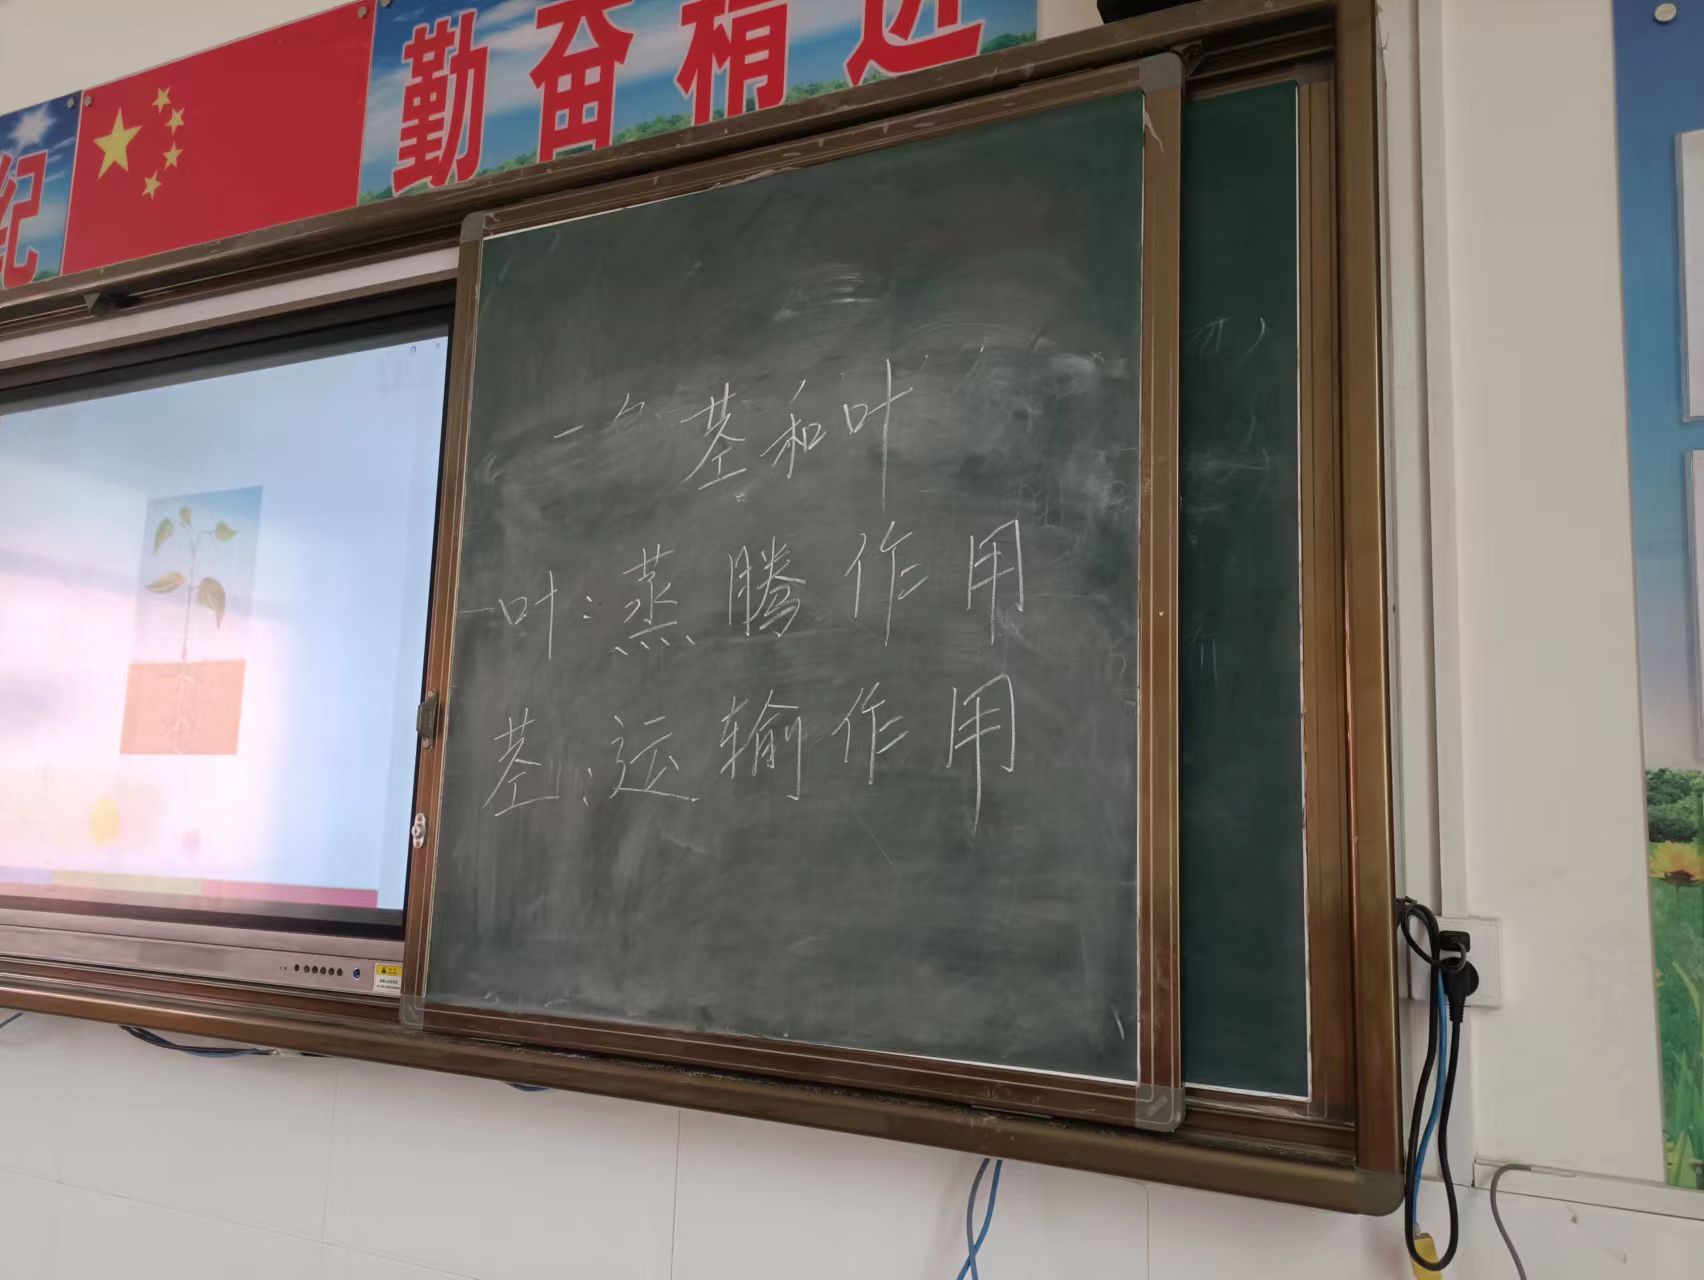 纪
勤奋精进
茎和叶
叶:蒸腾作用
茎:运输作用